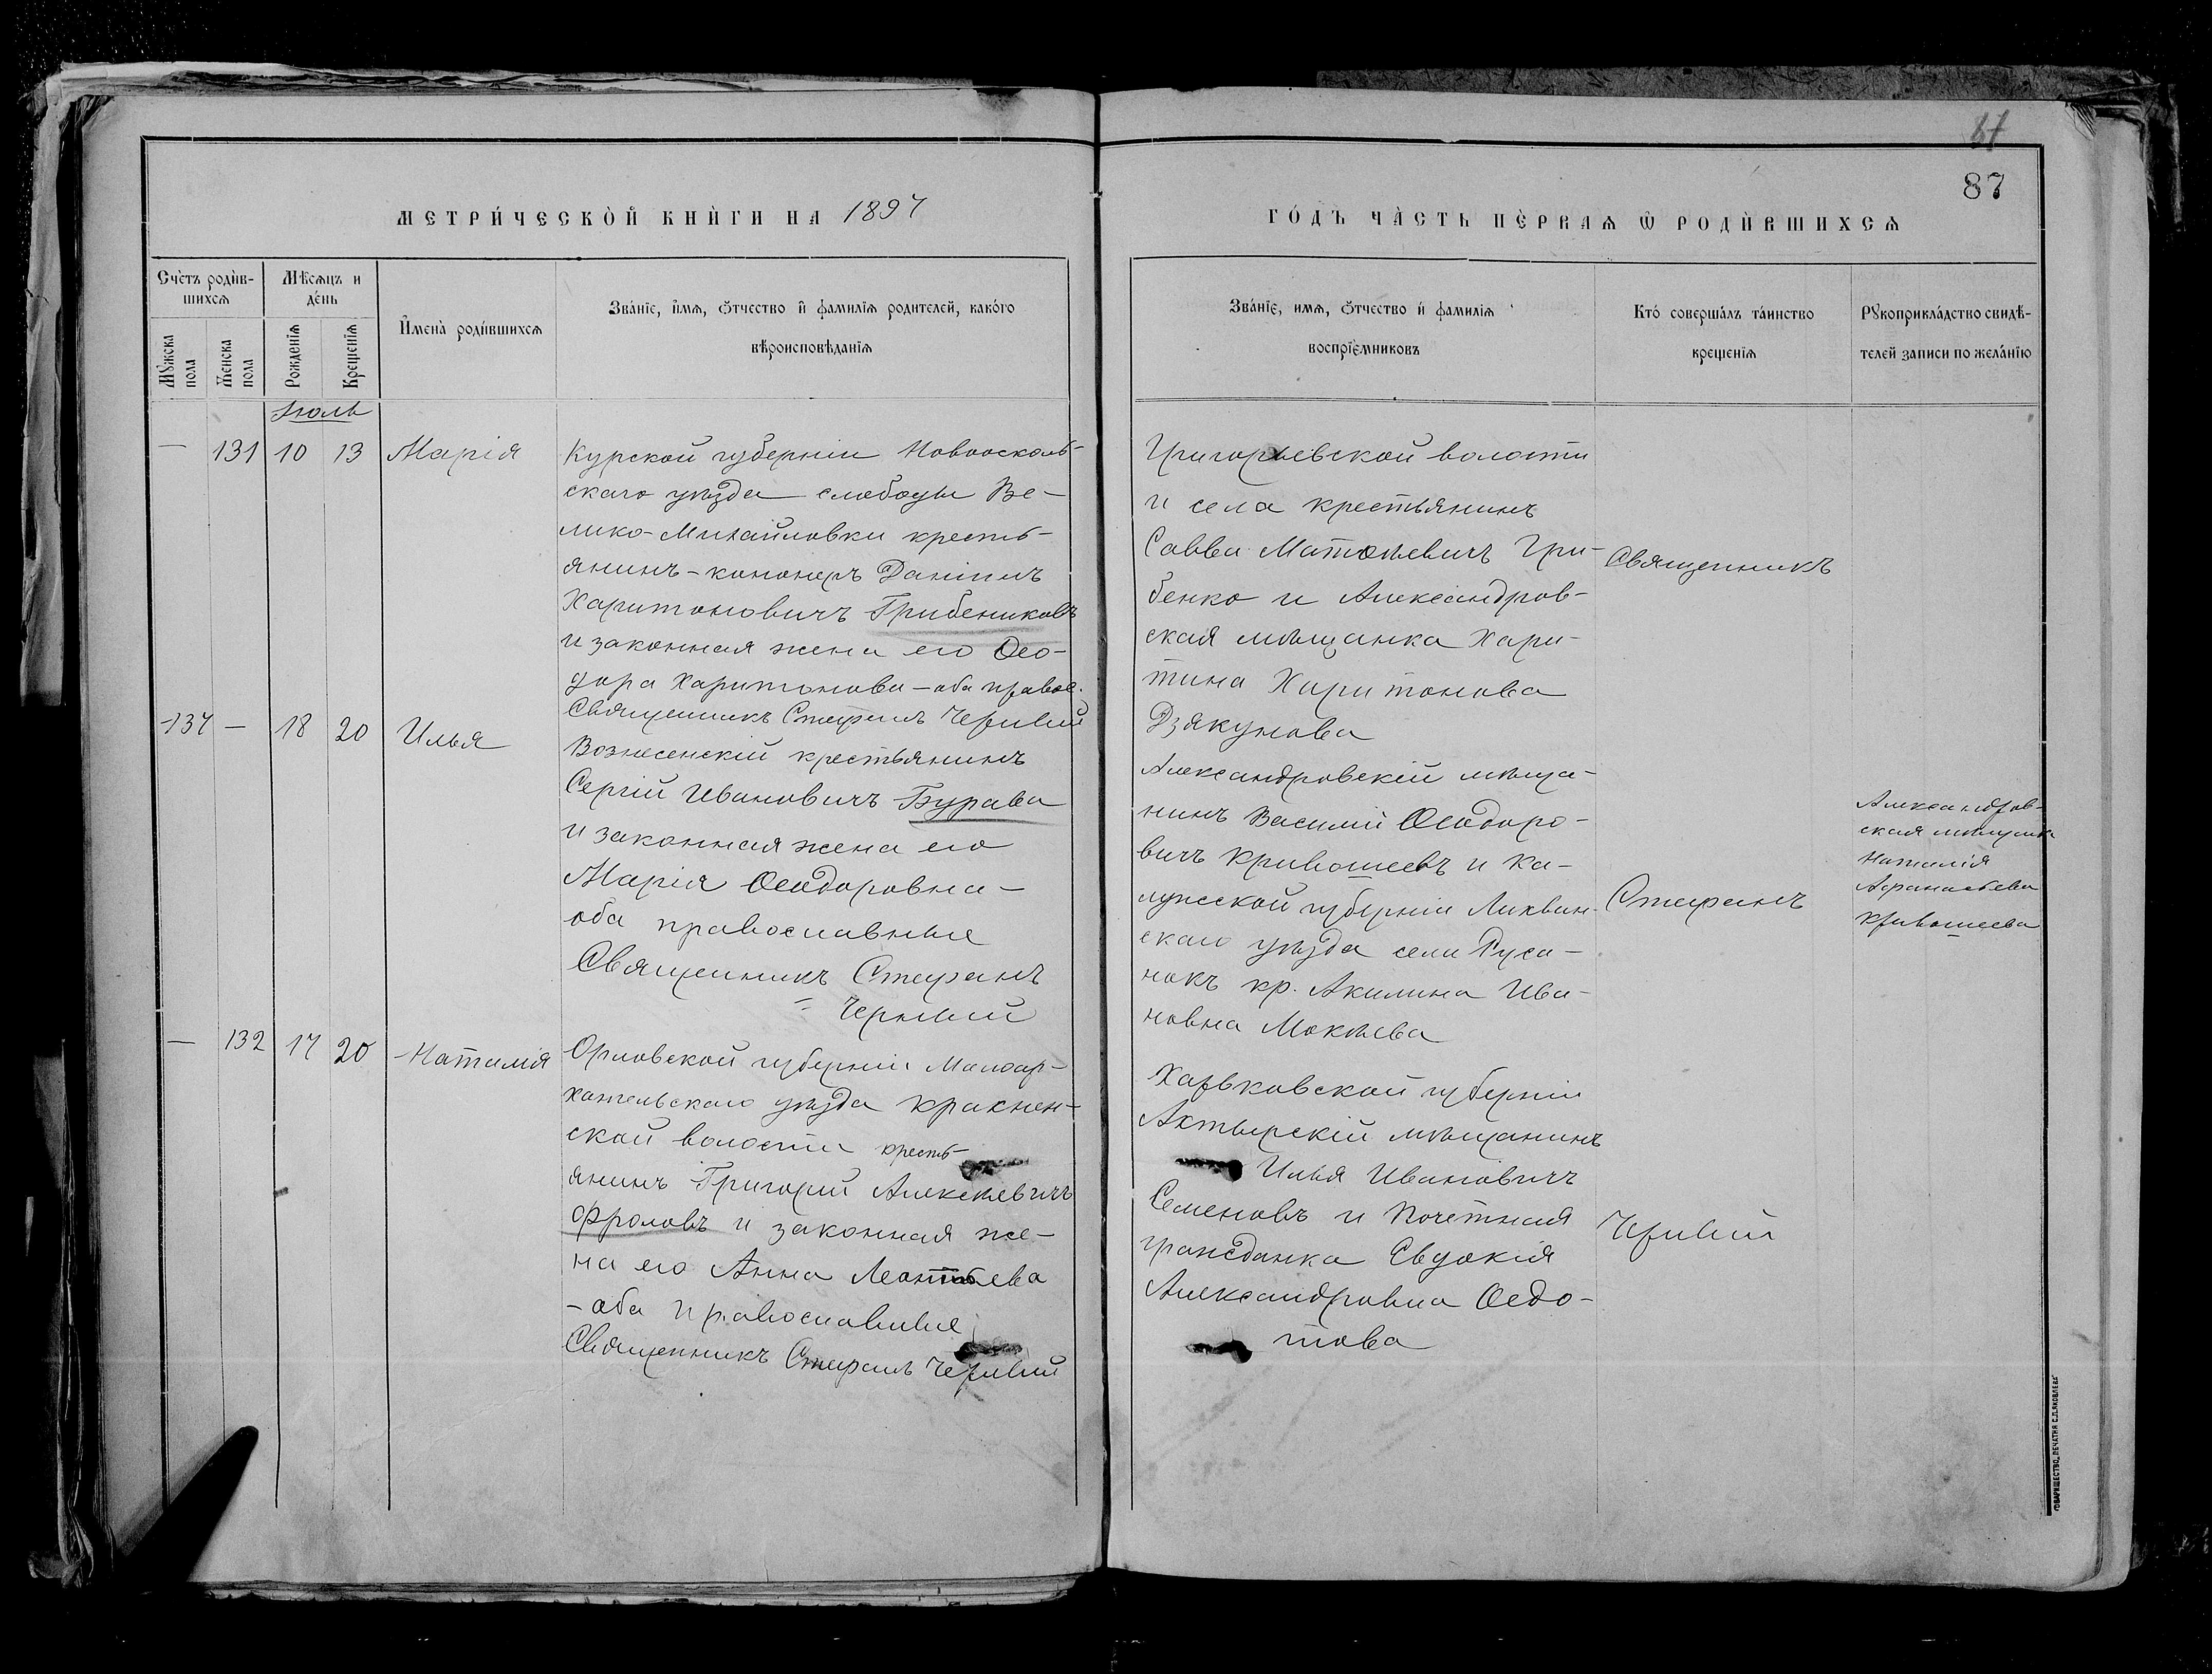 87
МЕТРИ́ЧЕСКОЙ КНИ́ГИ НА 1897
ГО́ДЪ ЧА́СТЬ ПЕ́РВАѦ Ѡ҆ РОДИ́ВШИХСѦ
Сче́тъ роди́в-
шихсѧ
Мѣ́сѧцъ и
де́нь
Мꙋ́жеска
пола
Же́нска
пола
Рожденїѧ
Крещенїѧ
И҆мена̀ роди́вшихсѧ
Зва́нїе, и҆́мѧ, ѻ҆́тчество и҆ фамилїѧ родителей, како́го
вѣроисповѣ́данїѧ
Зва́нїе, имѧ, ѻ҆́тчество и҆ фамилїѧ
воспрїе́мниковъ
Кто́ соверша́лъ та́инство
крещенїѧ
Рꙋкоприкла́дство свидѣ́-
телей записи по жела́нїю
Іюль
— 131 10 13 Марія
Курской губерніи Новооскол-
скаго уѣзда слободы Ве-
лико-Михайловки кресть-
янинъ-кононеръ Даніилъ
Харитоновичъ Грибениковъ
и законная жена его Ѳео-
дора Харитонова – оба правос.
Священникъ Стефанъ Черный
Григорьевской волости
и села крестьянинъ
Савва Матѳѣевичъ Гри-
бенко и Александров-
ская мѣщанка Хари-
тина Харитонова
Дзякунова
Священникъ
137 — 18 20 Илья
Вознесенскій крестьянинъ
Сергій Ивановичъ Бурава
и законная жена его
Марія Ѳеодоровна –
оба православные
Священникъ Стефанъ
= Черный
Александровскій мѣща-
нинъ Василій Ѳеодоро-
вичъ Кривошеевъ и Ка-
лужской губерніи Лихвин-
скаго уѣзда села Руса-
нокъ кр. Акилина Ива-
новна Мокѣева
Стефанъ
Александров-
ская мѣщанка
Наталія
Афанасьева
Кривошеева
— 132 17 20 Наталія
Орловской губерніи Малоар-
хангельскаго уѣзда
ской волости кресть-
янинъ Григорій Алексѣевичъ
Фроловъ и законная же-
на его Анна Леонтьева
– оба православные
Священникъ Стефанъ Черный
Харьковской губерніи
Ахтырскій мѣщанинъ
Илья Ивановичъ
Семеновъ и Почетная
гражданка Евдокія
Александровна Ѳедо-
това
Черный
ТОВАРИЩЕСТВО „ПЕЧАТНЯ С.П.ЯКОВЛЕВА“